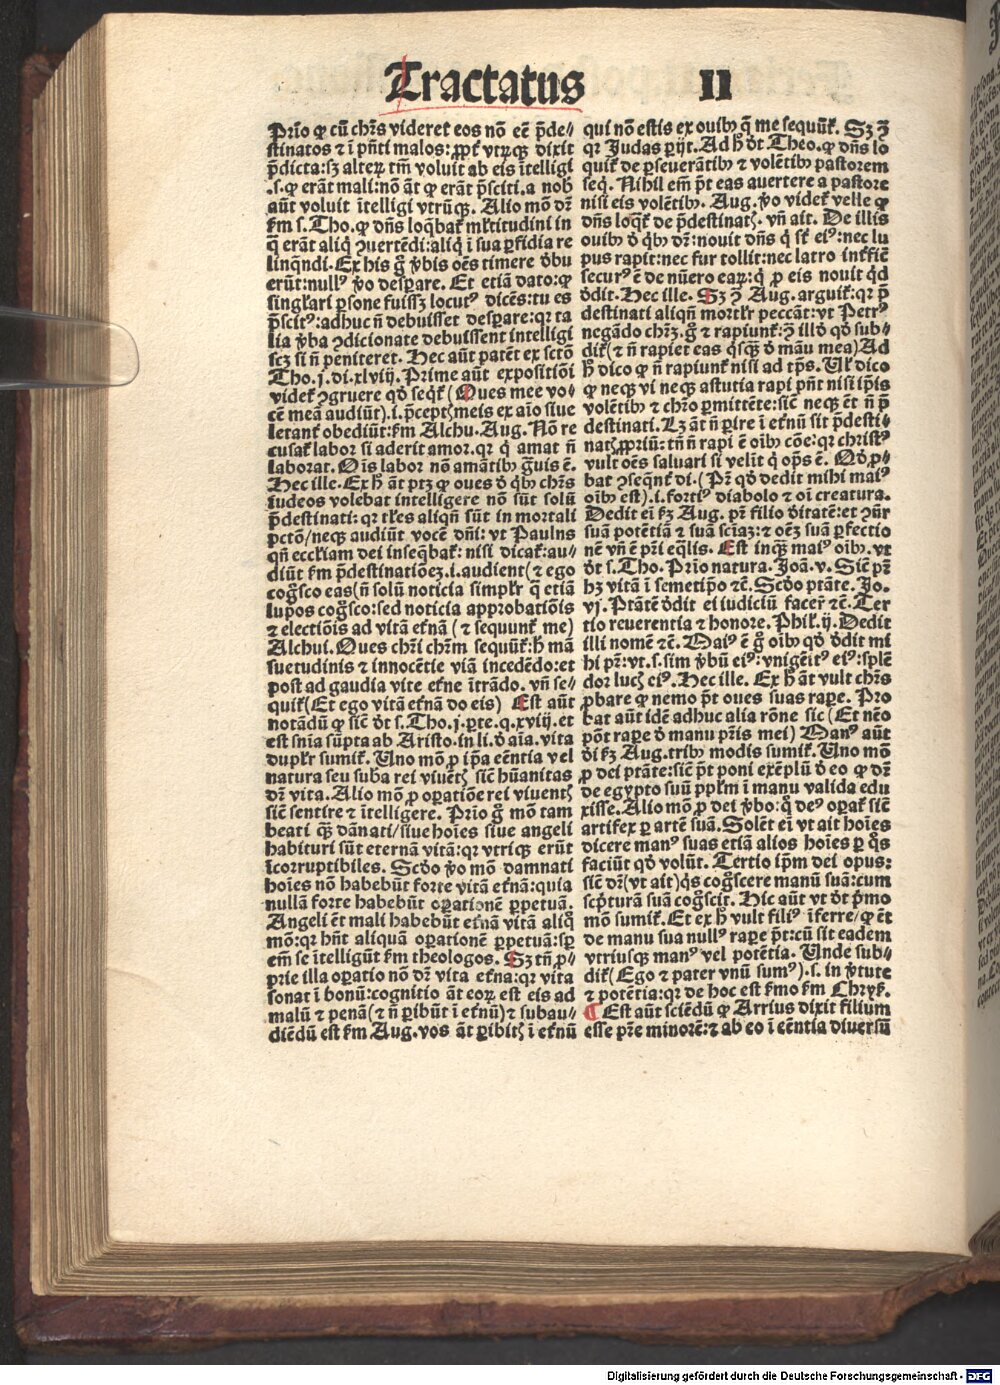 Tractatus II
Prīo ꝙ cū chr̄s videret eos nō eē p̄de⸗
stinatos ⁊ ī pn̄ti malos: ꝓpt̄ vtrūqꝫ dixit
p̄dicta: sꝫ alterꝝ tm̄ voluit ab eis ītelligi
.s. ꝙ erāt mali: nō āt ꝙ erāt p̄sciti. a nob̄
aūt voluit ītelligi vtrūqꝫ. Alio mō dr̄
ẜm s. Tho. ꝙ dn̄s loq̄bat̄ ml̄titudini in
q̄ erāt aliq̄ ꝯuertēdi: aliq̄ ī sua ꝑfidia re
linq̄ndi. Ex his gͦ v̄bis oēs timere debu
erūt: nullꝰ v̄o desꝑare. Et etiā dato: ꝙ
singl̄ari ꝑsone fuissꝫ locutꝰ dicēs: tu es
p̄scitꝰ: adhuc n̄ debuisset desꝑare: qꝛ ta
lia v̄ba ꝯdicionate debuissent intelligi
scꝫ si n̄ peniteret. Hec aūt patēt ex sct̄o
Tho. j. di. xlviij. Prime aūt expositiōi
videt̄ ꝯgruere qd̄ seqt̄ (Oues mee vo⸗
cē meā audiūt). i. p̄ceptꝭ meis ex aīo siue
letant̄ obediūt: ẜm Alchu. Aug. Nō re
cusat̄ labor si aderit amor. qꝛ q̄ amat n̄
laborat. Oīs labor nō amātibꝰ gͣuis ē.
Hec ille. Et h̄ āt ptꝫ ꝙ oues d̄ qͥbꝰ chr̄s
iudeos volebat intelligere nō sūt solū
p̄destinati: qꝛ tl̄es aliqn̄ sūt in mortali
pctō/neqꝫ audiūt vocē dn̄i: vt Paulns
qn̄ eccl̄iam dei inseq̄bat̄: nisi dicat̄: au⸗
diūt ẜm p̄destinatiōeꝫ. i. audient (⁊ ego
cogͦsco eas (n̄ solū noticia simpl̄r q̄ etiā
lupos cogͦsco: sed noticia approbatiōis
⁊ electiōis ad vitā et̄nā (⁊ sequunt̄ me)
Alchui. Oues chr̄i chr̄m sequūt̄: h̄ mā
suetudinis ⁊ innocētie viā incedēdo: et
post ad gaudia vite et̄ne ītrādo. vn̄ se⸗
quit̄ (Et ego vitā et̄nā do eis) Est aūt
notādū ꝙ sic̄ dt̄ s. Tho. j. ꝑte. q. xviij. et
est sn̄ia sūpta ab Aristo. in li. d̄ aīa. vita
dupl̄r sumit̄. Uno mō ꝓ ip̄a eēntia vel
natura seu suba rei viuētꝭ sic̄ hūanitas
dr̄ vita. Alio mō ꝓ oꝑatiōe rei viuentꝭ
sic̄ sentire ⁊ ītelligere. Prīo gͦ mō tam
beati qͣꝫ dānati/siue hoīes siue angeli
habituri sūt eternā vitā: qꝛ vtriqꝫ erūt
īcorruptibiles. Scd̄o v̄o mō damnati
hoīes nō habebūt forte vitā et̄nā: quia
nullā forte habebūt oꝑationē ꝑpetuā.
Angeli et̄ mali habebūt et̄nā vitā aliqͦ
mō: qꝛ hn̄t aliquā oꝑationē ꝑpetuā: sꝑ
em̄ se ītelligūt ẜm theologos. Sꝫ tn̄ ꝓ⸗
prie illa oꝑatio nō dr̄ vita et̄na: qꝛ vita
sonat ī bonū: cognitio āt eoꝝ est eis ad
malū ⁊ penā (⁊ n̄ ꝑibūt ī et̄nū) ⁊ subau⸗
diēdū est ẜm Aug. vos āt ꝑibitꝭ ī et̄nū
qui nō estis ex ouibꝰ q̄ me sequūt̄. Sꝫ ꝯͣ
qꝛ Judas ꝑijt. Ad h̄ dt̄ Theo. ꝙ dn̄s lo
quit̄ de ꝑseuerātibꝰ ⁊ volētibꝰ pastorem
seq̄. Nihil em̄ pt̄ eas auertere a pastore
nisi eis volētibꝰ. Aug. v̄o videt̄ velle ꝙ
dn̄s loqͥt̄ de p̄destinatꝭ. vn̄ ait. De illis
ouibꝰ d̄ qͥbꝰ dr̄: nouit dn̄s q̄ st̄ eiꝰ: nec lu
pus rapit: nec fur tollit: nec latro int̄fiē
securꝰ ē de nūero eaꝝ: qͥ ꝓ eis nouit qͥd
dedit. Hec ille. Sꝫ ꝯͣ Aug. arguit̄: qꝛ p̄
destinati aliqn̄ mortl̄r peccāt: vt Petrꝰ
negādo chrꝫ. gͦ ⁊ rapiunt̄: ꝯͣ illd̄ qd̄ sub⸗
dit̄ (⁊ n̄ rapiet eas qͥsqͣꝫ d̄ māu mea) Ad
h̄ dico ꝙ n̄ rapiunt̄ nisi ad tp̄s. Ul̄ dico
ꝙ neqꝫ vi neqꝫ astutia rapi pn̄t nisi ip̄is
volētibꝰ ⁊ chr̄o ꝑmittēte: sic̄ neqꝫ et̄ n̄ p̄
destinati. Lꝫ āt n̄ ꝑire ī et̄nū sit p̄desti⸗
natꝭ ꝓpriū: tn̄ n̄ rapi ē oībꝰ cōe: qꝛ christꝰ
vult oēs saluari si velīt qͥ op̄s ē. Qd̄ ꝓ⸗
bat ꝯseqn̄t̄ di. (Pr̄ qd̄ dedit mihi maiꝰ
oībꝰ est). i. fortiꝰ diabolo ⁊ oī creatura.
Dedit ei ẜꝫ Aug. pr̄ filio d̄itatē: et ꝯūr
suā potētiā ⁊ suā sciaꝫ: ⁊ oēꝫ suā ꝑfectio
nē vn̄ ē pr̄i eq̄lis. Est inqͣꝫ maiꝰ oībꝰ. vt
dt̄ s. Tho. Prīo natura. Joā. v. Sic̄ pr̄
hꝫ vitā ī semetip̄o ⁊c̄. Scd̄o ptāte. Jo.
vj. Ptātē d̄dit ei iudiciū facer̄ ⁊c̄. Ter
tio reuerentia ⁊ honore. Phil̄. ij. Dedit
illi nomē ⁊c̄. Maiꝰ ē gͦ oībꝰ qd̄ d̄dit mi
hi pr̄: vt. s. sim v̄bū eiꝰ: vnigēitꝰ eiꝰ: splē
dor lucꝭ eiꝰ. Hec ille. Ex h̄ āt vult chr̄s
ꝓbare ꝙ nemo pt̄ oues suas raꝑe. Pro
bat aūt idē adhuc alia rōne sic (Et nēo
pōt raꝑe d̄ manu pr̄is mei) Manꝰ aūt
d̄i ẜꝫ Aug. tribꝰ modis sumit̄. Uno mō
ꝓ dei ptāte: sic̄ pt̄ poni exēplū d̄ eo ꝙ dr̄
de egypto suū pplm̄ ī manu valida edu
xisse. Alio mō ꝓ dei v̄bo: q̄ deꝰ oꝑat̄ sic̄
artifex ꝑ artē suā. Solēt ei vt ait hoīes
dicere manꝰ suas etiā alios hoīes ꝑ qͦs
faciūt qd̄ volūt. Tertio ip̄m dei opus:
sic̄ dr̄ (vt ait) qͥs cogͦscere manū suā: cum
scp̄turā suā cogͦscit. Hic aūt vt dt̄ pͥmo
mō sumit̄. Et ex h̄ vult filiꝰ īferre/ꝙ et̄
de manu sua nullꝰ raꝑe pt̄: cū sit eadem
vtriusqꝫ manꝰ vel potētia. Unde sub⸗
dit̄ (Ego ⁊ pater vnū sumꝰ). s. in v̄tute
⁊ potētia: qꝛ de hoc est ẜmo ẜm Chryẜ.
¶ Est aūt sciēdū ꝙ Arrius dixit filium
esse pr̄e minorē: ⁊ ab eo ī eēntia diuersū
Digitalisierung gefördert durch die Deutsche Forschungsgemeinschaft - DFG